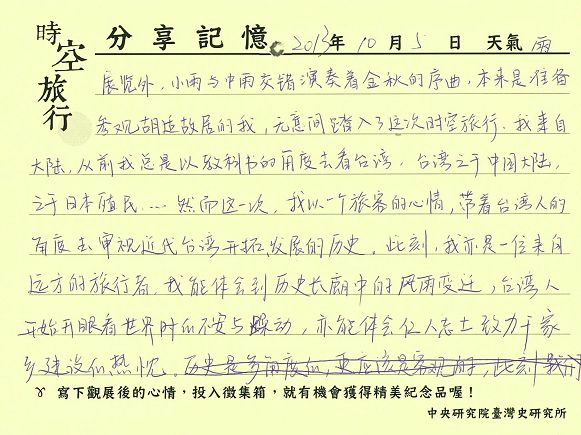 時空旅行
分享記憶 2013年 10月 5日 天氣 雨
展览外，小雨与中雨交错演奏着金秋的序曲，本来是准备
参观胡适故居的我，无意间踏入了这次时空旅行。我来自
大陆，从前我总是以教科书的角度去看台湾，台湾之于中国大陆，
之于日本殖民……然而这一次，我以一个旅客的心情，带着台湾人的
角度去审视近代台湾开拓发展的历史。此刻，我亦是一位来自
远方的旅行者，我能体会到历史长廊中的风雨变迁，台湾人
开始开眼看世界时的不安与躁动，亦能体会仁人志士致力于家
乡建设的热忱。历史是多角度的，更应该是客观的，此刻我们
寫下觀展後的心情，投入徵集箱，就有機會獲得精美紀念品喔！
中央研究院臺灣史研究所